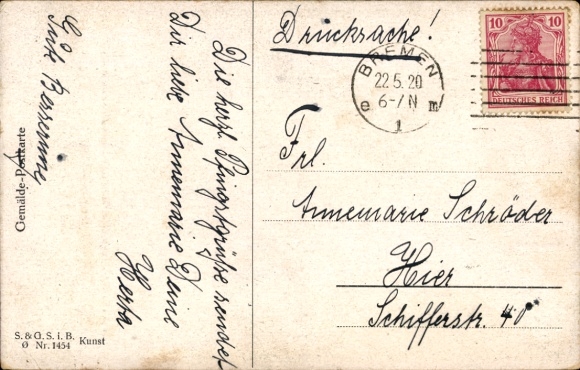 Drucksache!
BREMEN
22.5.20
6-7N
1
10 10
DEUTSCHES REICH
Frl.
Annemarie Schröder
Hier
Schifferstr. 40
Die herzl. Pfingstgrüße sendet
Dir liebe Annemarie Deine
Herta
Gemälde-Postkarte
S. & G. S. i. B.
Ø Nr. 1454 Kunst